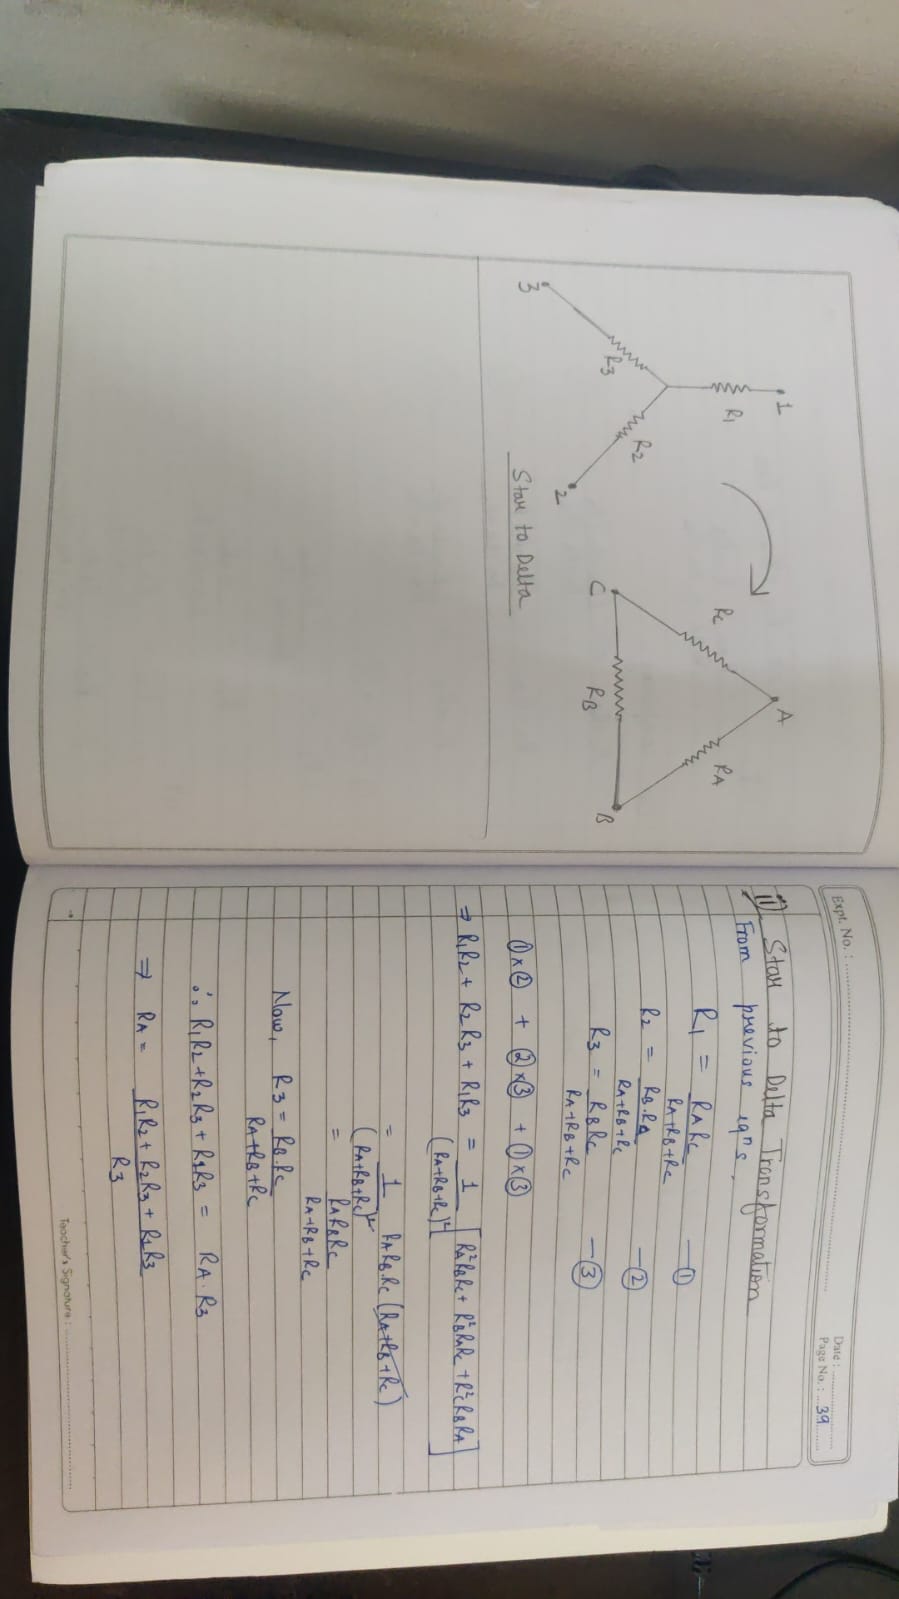 1
R1
R3
R2
3
2
A
Rc
RA
C
RB
B
Star to Delta
Expt. No. :
Date :
Page No. : 39
11) Star to Delta Transformation
From previous eqns,
R1 = RA Rc / RA+RB+Rc — ①
R2 = RB.RA / RA+RB+Rc — ②
R3 = RB Rc / RA+RB+Rc — ③
①x② + ②x③ + ①x③
⇒ R1R2 + R2R3 + R1R3 = 1/(RA+RB+Rc)² [RA²RBRc + RB²RARc + Rc²RBRA]
= 1/(RA+RB+Rc)² RARB.Rc (RA+RB+Rc)
= RARBRc / RA+RB+Rc
Now, R3 = RB.Rc / RA+RB+Rc
∴ R1R2+R2R3+R1R3 = RA.R3
⇒ RA = R1R2+R2R3+R1R3 / R3
Teacher's Signature :